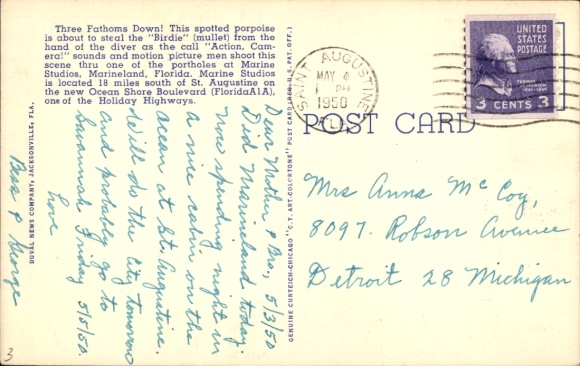 Three Fathoms Down! This spotted porpoise
is about to steal the "Birdie" (mullet) from the
hand of the diver as the call "Action, Cam-
era!" sounds and motion picture men shoot this
scene thru one of the portholes at Marine
Studios, Marineland, Florida. Marine Studios
is located 18 miles south of St. Augustine on
the new Ocean Shore Boulevard (FloridaA1A),
one of the Holiday Highways.
DUVAL NEWS COMPANY, JACKSONVILLE, FLA.
Dear Mother & Bro., 5/3/50
Did Marineland today.
Now spending night in
a nice cabin on the
ocean at St. Augustine.
Will do the city tomorrow
and probably go to
Savannah Friday 5/5/50.
Love
Bess & George
GENUINE CURTEICH-CHICAGO "C.T. ART-COLORTONE" POST CARD (REG. U.S. PAT. OFF.)
SAINT AUGUSTINE
MAY 4
PM
1950
FLA.
UNITED
STATES
POSTAGE
THOMAS
JEFFERSON
3 CENTS 3
POST CARD
Mrs Anna McCoy,
8097. Robson Avenue
Detroit 28 Michigan
3